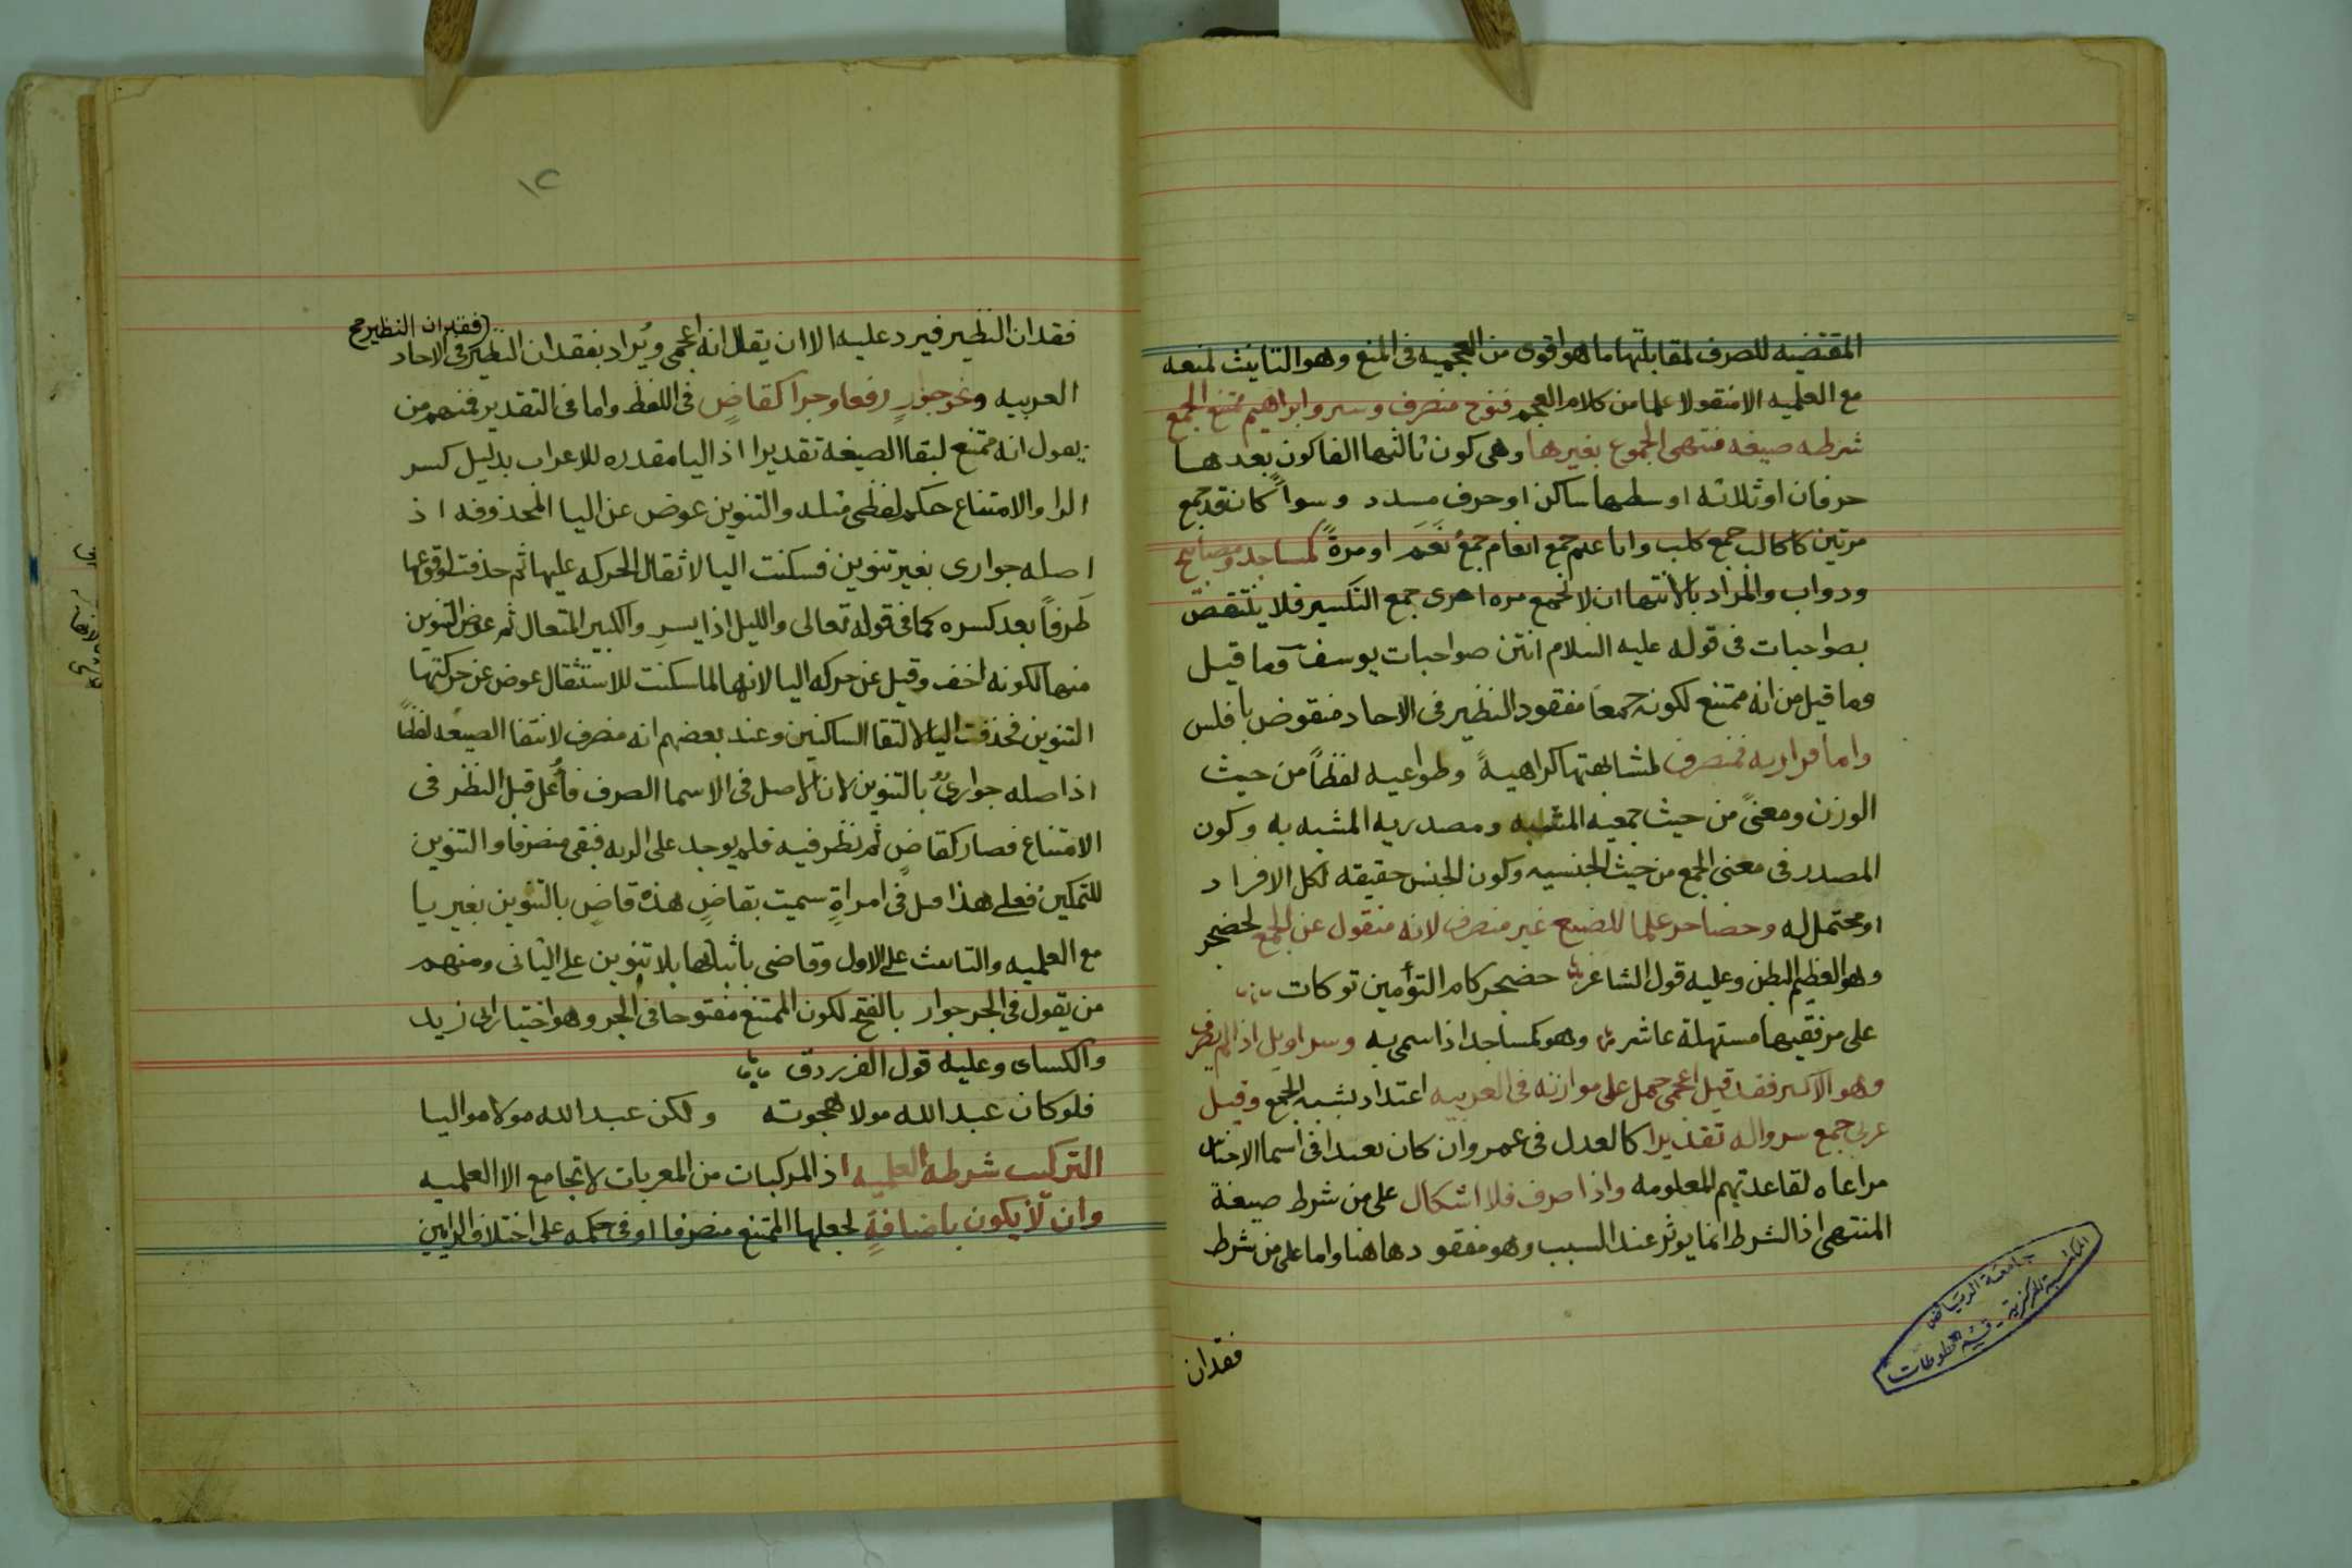 المقتضيه للصرف لمقابلتها ما هو اقوى من العجميه فى المنع وهو التانيث لمنعه
مع العلميه الا منقولا علما من كلام العجم فنوح منصرف وستر وابراهيم ممتنع الجمع
شرطه صيغه منتهى الجموع بغيرها وهى كون ثالثها الفا كون بعدها
حرفان او ثلاثه اوسطها ساكن او حرف مسدد وسواً كان قد جمع
مرتين كاكالب جمع كلب واناعم جمع انعام جمعُ نَعَمَ او مرةً كمساجد ومصابيح
ودواب والمراد بالانتها ان لا تجمع مره اخرى جمع التكسير فلا ينتقض
بصواحبات فى قوله عليه السلام انتن صواحبات يوسف وما قيل
وما قيل من انه ممتنع لكونه جمعاً مفقود النظير فى الاحاد منقوض بافلس
واما فرازيه فمنصرف لمشابهتها كراهيةً وطواعيه لفظاً من حيث
الوزن ومعنىً من حيث جمعيه المشبه ومصدريه المشبه به وكون
المصدر فى معنى الجمع من حيث الجنسيه وكون الجنس حقيقه لكل الافراد
او محتمل له وحضاجر علما للضبع غير منصرف لانه منقول عن الجمع لحضجر
وهو العظيم البطن وعليه قول الشاعر حضجر كام التوأمين توكات
على مرفقيها مستهلة عاشر وهو كمساجد اذا سمى به وسراويل اذا لم يصرف
وهو الاكثر فقد قيل اعجمى حمل على موازنه فى العربيه اعتداد بشبه الجمع وقيل
عربى جمع سرواله تقديرا كالعدل فى عمر وان كان بعيدا فى اسما الاجناس
مراعاه لقاعدتهم المعلومه واذا صرف فلا اشكال على من شرط صيغة
المنتهى اذ الشرط انما يوثر عند السبب وهو مفقود هاهنا واما على من شرط
فقدان
جامعة الرياض
المكتبة المركزية - قسم المخطوطات
١٢
فقدان النظير فيرد عليه الا ان يقال انه اعجمى ويُراد بفقدان النظير فى الاحاد
(فقدان النظير صح
العربيه ونحو جوارٍ رفعا وجرا كقاضٍ فى اللفظ واما فى التقدير فمنهم من
يقول انه ممتنع لبقا الصيغه تقديرا اذ اليا مقدره للاعراب بدليل كسر
الرا والامتناع حكم لفظى مثله والتنوين عوض عن اليا المحذوفه اذ
اصله جوارى بغير تنوين فسكنت اليا لاثقال الحركه عليها ثم حذفت لوقوعها
طرفاً بعد كسره كما فى قوله تعالى والليل اذا يسرِ والكبير المتعال ثم عوض التنوين
منها لكونه اخف وقيل عن حركه اليا لانها لما سكنت للاستثقال عوض عن حركتها
التنوين فحذفت اليا لالتقا الساكنين وعند بعضهم انه منصرف لانتفا الصيغه لفظاً
اذ اصله جوارىٌ بالتنوين لان الاصل فى الاسما الصرف فاُعل قبل النظر فى
الامتناع فصار كقاضٍ ثم نظر فيه فلم يوجد على الربه فبقى منصرفا والتنوين
للتمكين فعلى هذا قيل فى امراةٍ سميت بقاضٍ هذه قاضٍ بالتنوين بغير يا
مع العلميه والتانيث على الاول وقاضى باثباتها بلا تنوين على الثانى ومنهم
من يقول فى الجر جوار بالفتح لكون الممتنع مفتوحا فى الجر وهو اختيار ابى زيد
والكساى وعليه قول الفرزدق
فلو كان عبد الله مولا هجوته ولكن عبد الله مولا مواليا
التركيب شرطه العلميه اذ المركبات من المعربات لا تجامع الا العلميه
وان لا يكون باضافةٍ لجعلها الممتنع منصرفا او فى حكمه على اختلاف الرايين